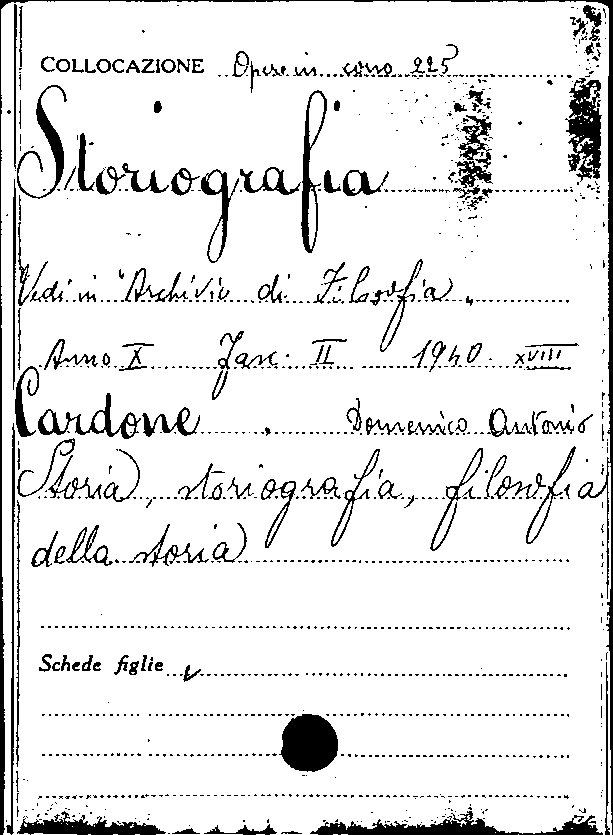 COLLOCAZIONE Opere in corso 225
Storiografia
Vedi in "Archivio di Filosofia"
Anno X Fasc. II 1940. XVIII
Cardone . Domenico Antonio
Storia, storiografia, filosofia
della storia
Schede figlie v